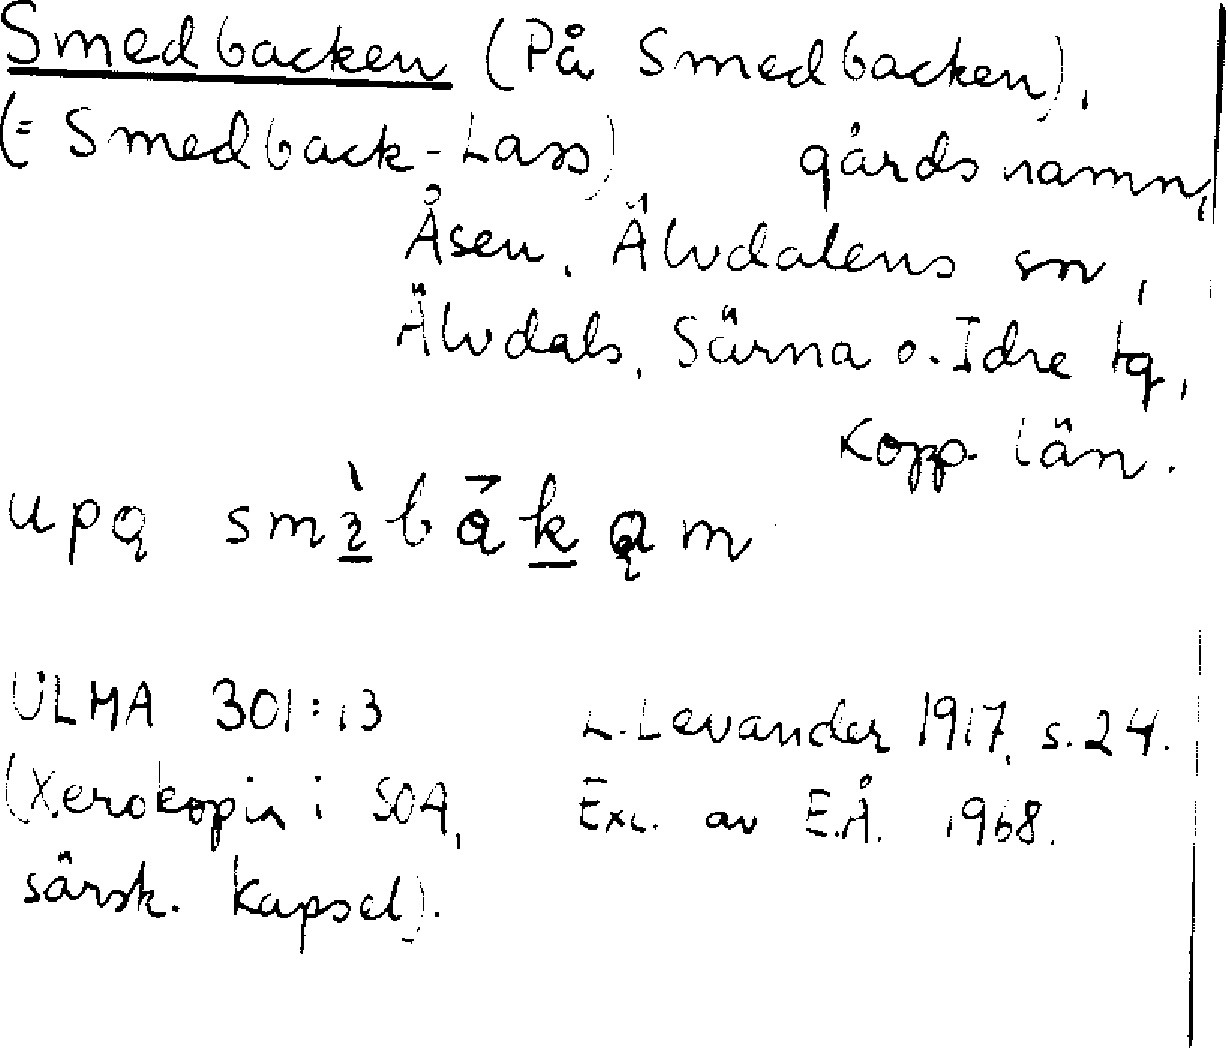 Smedbacken (På Smedbacken),
(= Smedback-Lass) gårdsnamn,
Åsen, Älvdalens sn,
Älvdals, Särna o. Idre tg,
Kopp. län.
upą
ULMA 301:13 L. Levander 1917, s. 24.
(Xerokopia i SOA, Exc. av E.Å. 1968.
särsk. kapsel).